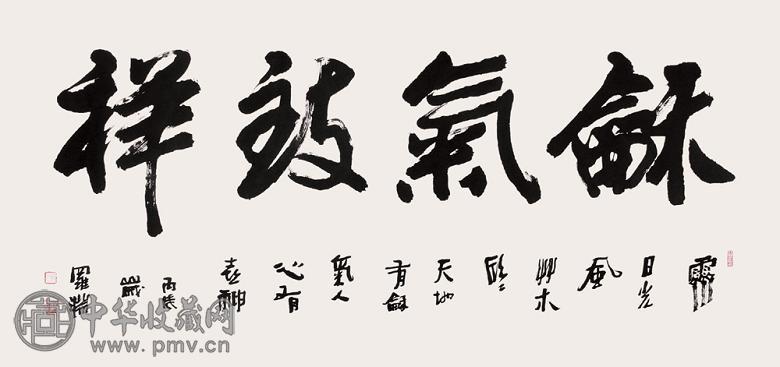 龢氣致祥
霽
日光
風
艸木
欣〻
天地
有龢
氣人
心有
喜神
丙戌
歲
羅楊
中华收藏网
www.pmv.cn